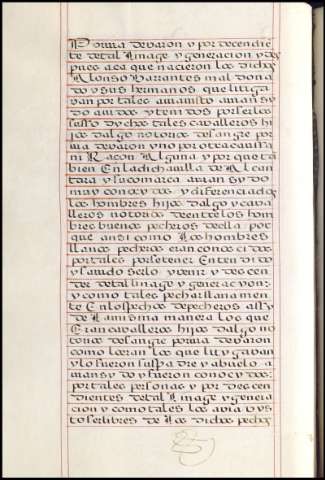 Por via de varon y por decendiẽ
te de tal linage y generacion y des
pues aca que nacieron los dichos
Alonso Barrantes maldona
do y sus hermanos que litiga
van por tales avian visto avian sy
do avidos y tenidos por los
suso dychos tales cavalleros hi
jos dalgo notorios de sangre por
via de varon y no por otra caussa
ni Racon Alguna y por que tã
bien En la dicha villa de Alcan
tara y su comarca avian sydo
muy conocydos y diferenciados
los hombres hijos dalgo y cava
lleros notorios de entre los hom
bres buenos pecheros della por
que ansi como los hombres
llanos pecheros eran conocidos
por tales por se tener Entendido
y savido serlo y venir y descen
der de tal linage y generacyon
y como tales pechar llanamen
te En los pechos de pecheros assy
de la misma manera los que
Eran cavalleros hijos dalgo no
torios de sangre por via de varon
como lo eran los que lityg avan
y lo fueron su padre y abuelo a
vian sydo y fueron conocydos
por tales personas y por descen
dientes de tal linage y genera
cion y como tales los avia vys
to ser libres de los dichos pechos